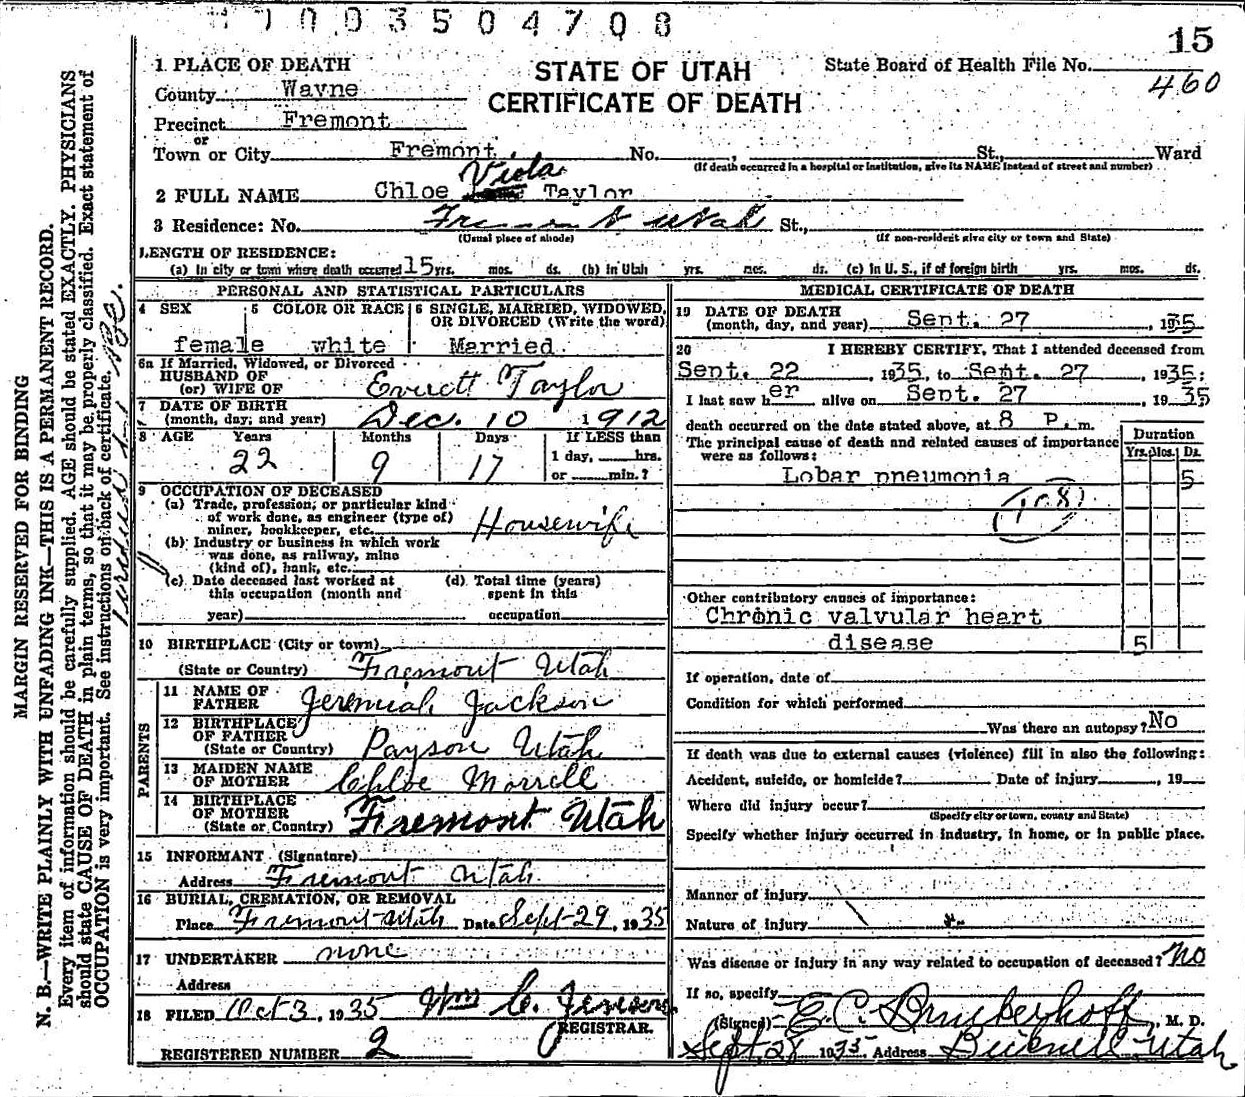 003504708
15
1 PLACE OF DEATH
STATE OF UTAH
CERTIFICATE OF DEATH
State Board of Health File No.
460
County Wayne
Precinct Fremont
or
Town or City Fremont No. , St., Ward
(If death occurred in a hospital or institution, give its NAME instead of street and number)
2 FULL NAME Chloe Viola Taylor
3 Residence: No. Fremont Utah St.,
(Usual place of abode) (If non-resident give city or town and State)
LENGTH OF RESIDENCE:
(a) In city or town where death occurred 15 yrs. mos. ds. (b) In Utah yrs. mos. ds. (c) In U. S., if of foreign birth yrs. mos. ds.
PERSONAL AND STATISTICAL PARTICULARS
4 SEX 5 COLOR OR RACE 6 SINGLE, MARRIED, WIDOWED, OR DIVORCED (Write the word)
female white Married
6a If Married, Widowed, or Divorced
HUSBAND OF
(or) WIFE OF Everett Taylor
7 DATE OF BIRTH
(month, day, and year) Dec. 10 1912
8 AGE Years Months Days If LESS than
22 9 17 1 day, hrs.
or min.?
9 OCCUPATION OF DECEASED
(a) Trade, profession, or particular kind
of work done, as engineer (type of)
miner, bookkeeper, etc. Housewife
(b) Industry or business in which work
was done, as railway, mine
(kind of), bank, etc.
(c) Date deceased last worked at (d) Total time (years)
this occupation (month and spent in this
year) occupation
10 BIRTHPLACE (City or town)
(State or Country) Fremont Utah
PARENTS
11 NAME OF
FATHER Jeremiah Jackson
12 BIRTHPLACE
OF FATHER
(State or Country) Payson Utah
13 MAIDEN NAME
OF MOTHER Chloe Morrell
14 BIRTHPLACE
OF MOTHER
(State or Country) Fremont Utah
15 INFORMANT (Signature)
Address Fremont Utah.
16 BURIAL, CREMATION, OR REMOVAL
Place Fremont Utah Date Sept-29, 1935
17 UNDERTAKER none
Address
18 FILED Oct 3, 1935 Wm C. Jensen
REGISTRAR.
REGISTERED NUMBER 2
MEDICAL CERTIFICATE OF DEATH
19 DATE OF DEATH
(month, day, and year) Sept. 27, 1935
20 I HEREBY CERTIFY, That I attended deceased from
Sept. 22, 1935, to Sept. 27, 1935;
I last saw her alive on Sept. 27, 1935
death occurred on the date stated above, at 8 P.m.
The principal cause of death and related causes of importance
were as follows:
Duration
Yrs. Mos. Ds.
Lobar pneumonia 5
108
Other contributory causes of importance:
Chronic valvular heart
disease 5
If operation, date of
Condition for which performed
Was there an autopsy? No
If death was due to external causes (violence) fill in also the following:
Accident, suicide, or homicide? Date of injury , 19
Where did injury occur?
(Specify city or town, county and State)
Specify whether injury occurred in industry, in home, or in public place.
Manner of injury
Nature of injury
Was disease or injury in any way related to occupation of deceased? No
If so, specify
(Signed) E. C. Bruckerhoff, M. D.
Sept. 28 1935 Address Bicknell, Utah
MARGIN RESERVED FOR BINDING
N. B.—WRITE PLAINLY WITH UNFADING INK—THIS IS A PERMANENT RECORD.
Every item of information should be carefully supplied. AGE should be stated EXACTLY. PHYSICIANS
should state CAUSE OF DEATH in plain terms, so that it may be properly classified. Exact statement of
OCCUPATION is very important. See instructions on back of certificate.